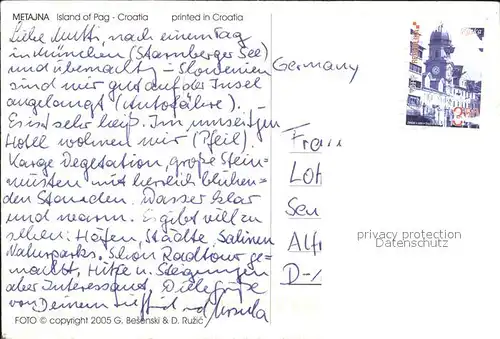 METAJNA Island of Pag - Croatia printed in Croatia
Liebe Mutti, nach einem Tag
in München (Starnberger See)
und Übernacht. - Slowenien
sind wir gut auf der Insel
angelangt (Autofähre). -
Es ist sehr heiß. Im umseitigen
Hotel wohnen wir (Pfeil).
Karge Vegetation, große Stein-
wüsten mit herrlich blühen-
den Stauden. Wasser klar
und warm. Es gibt viel zu
sehen: Häfen, Städte, Salinen
Naturparks. Schon Radtour ge-
macht, Hitze u. Steigungen
aber interessant. Viele Grüße
von Deinem und Ursula
FOTO © copyright 2005 G. Bešenski & D. Ružić
Germany
Frau
Lot
Sen
Alf
D-
privacy protection
Datenschutz